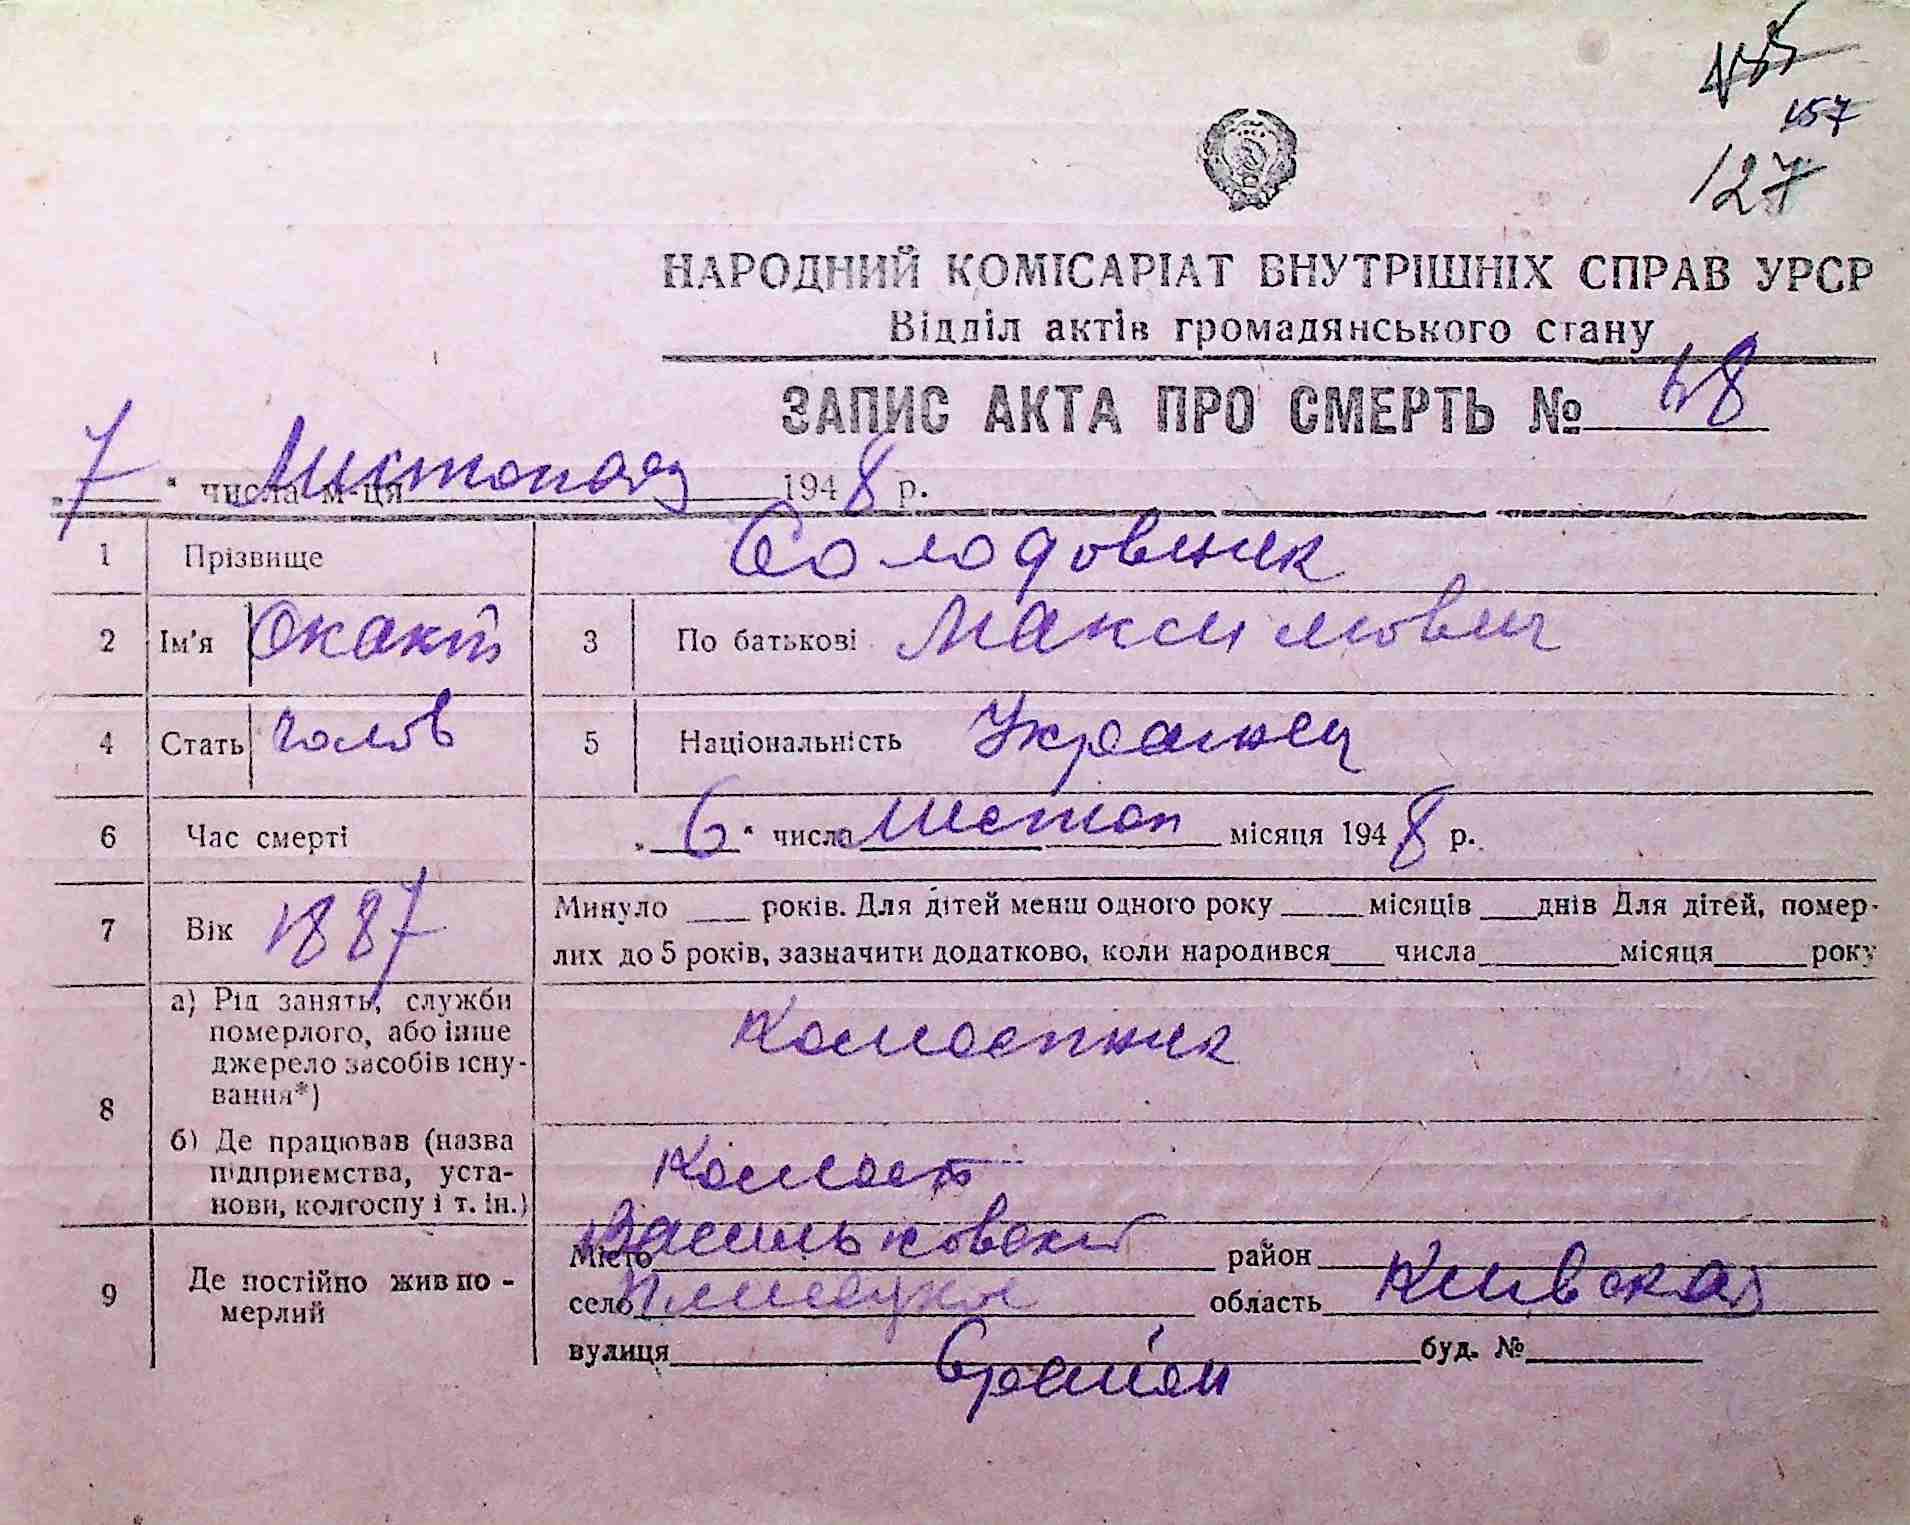 157
127
НАРОДНИЙ КОМІСАРІАТ ВНУТРІШНІХ СПРАВ УРСР
Відділ актів громадянського стану
ЗАПИС АКТА ПРО СМЕРТЬ № 18
„7“ числа м-ця Листопада 1948 р.
1 Прізвище Солодовник
2 Ім'я Окакій 3 По батькові Максимович
4 Стать чолов 5 Національність Украинец
6 Час смерті „6“ числа листоп місяця 1948 р.
7 Вік 1887 Минуло ___ років. Для дітей менш одного року ___ місяців ___ днів Для дітей, помер-
лих до 5 років, зазначити додатково, коли народився ___ числа ___ місяця ___ року
8 а) Рід занять, служби
померлого, або інше
джерело засобів існу-
вання*) Колгоспник
б) Де працював (назва
підприємства, уста-
нови, колгоспу і т. ін.) Колгосп
9 Де постійно жив по-
мерлий
Місто Васильковский район
село область Киівская
вулиця буд. №